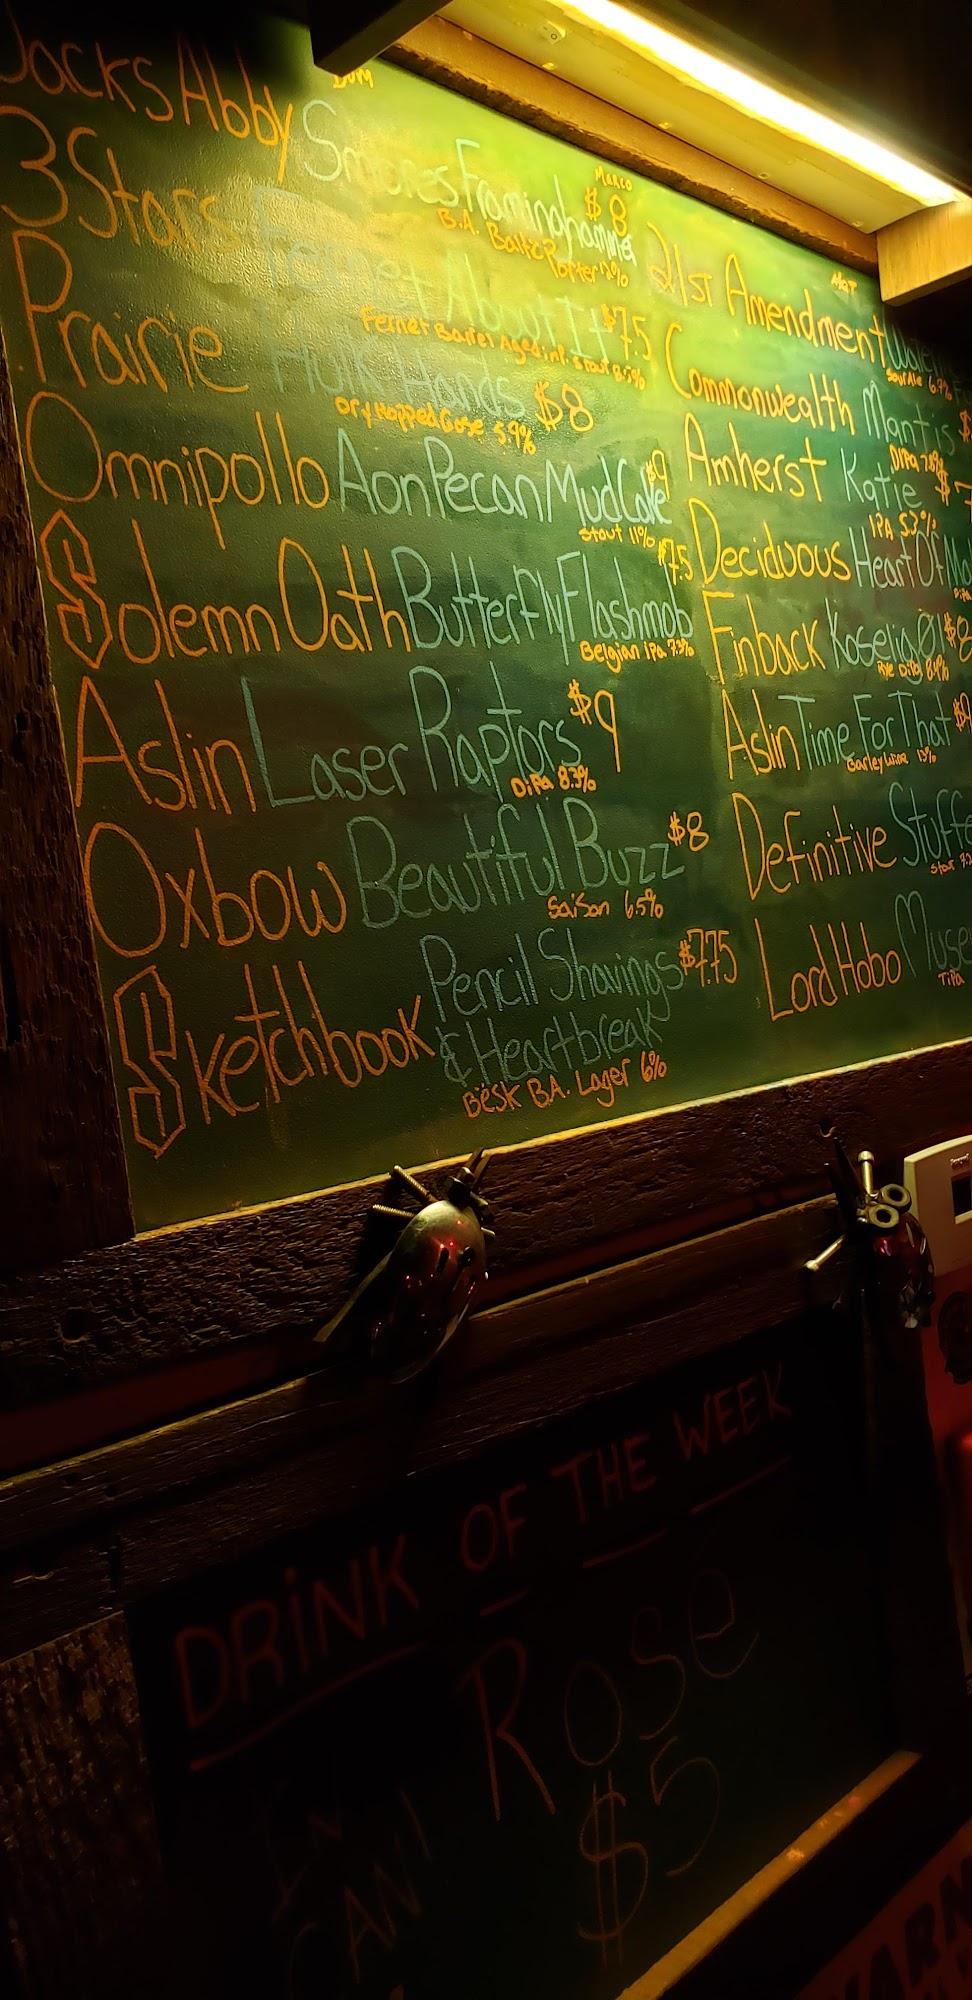 Jacks Abby Smores Framinghammer $8
B.A. Baltc Porter 12%
3 Stars Fernet About It $7.5
Fernet Barrel Aged imp. Stout 8.5%
Prairie Hulk Hands $8
Dry Hopped Gose 5.9%
Omnipollo Aon Pecan Mud Cake $9
Stout 11%
Solemn Oath Butterfly Flashmob $7.5
Belgian Ipa 7.3%
Aslin Laser Raptors $9
DiPa 8.3%
Oxbow Beautiful Buzz $8
Saison 6.5%
Sketchbook Pencil Shavings $7.75
& Heartbreak
Bësk B.A. Lager 6%
21st Amendment
Sour Ale
Commonwealth Mantis
DIPA
Amherst Katie $
IPA 5.3%
Deciduous Heart Of
Finback Koselig Øl $8
Rye DiPa 8.4%
Aslin Time For That $9
Barley Wine 13%
Definitive
Lord Hobo
TiPa
DRiNK OF THE WEEK
Rosé
$5
CAN!